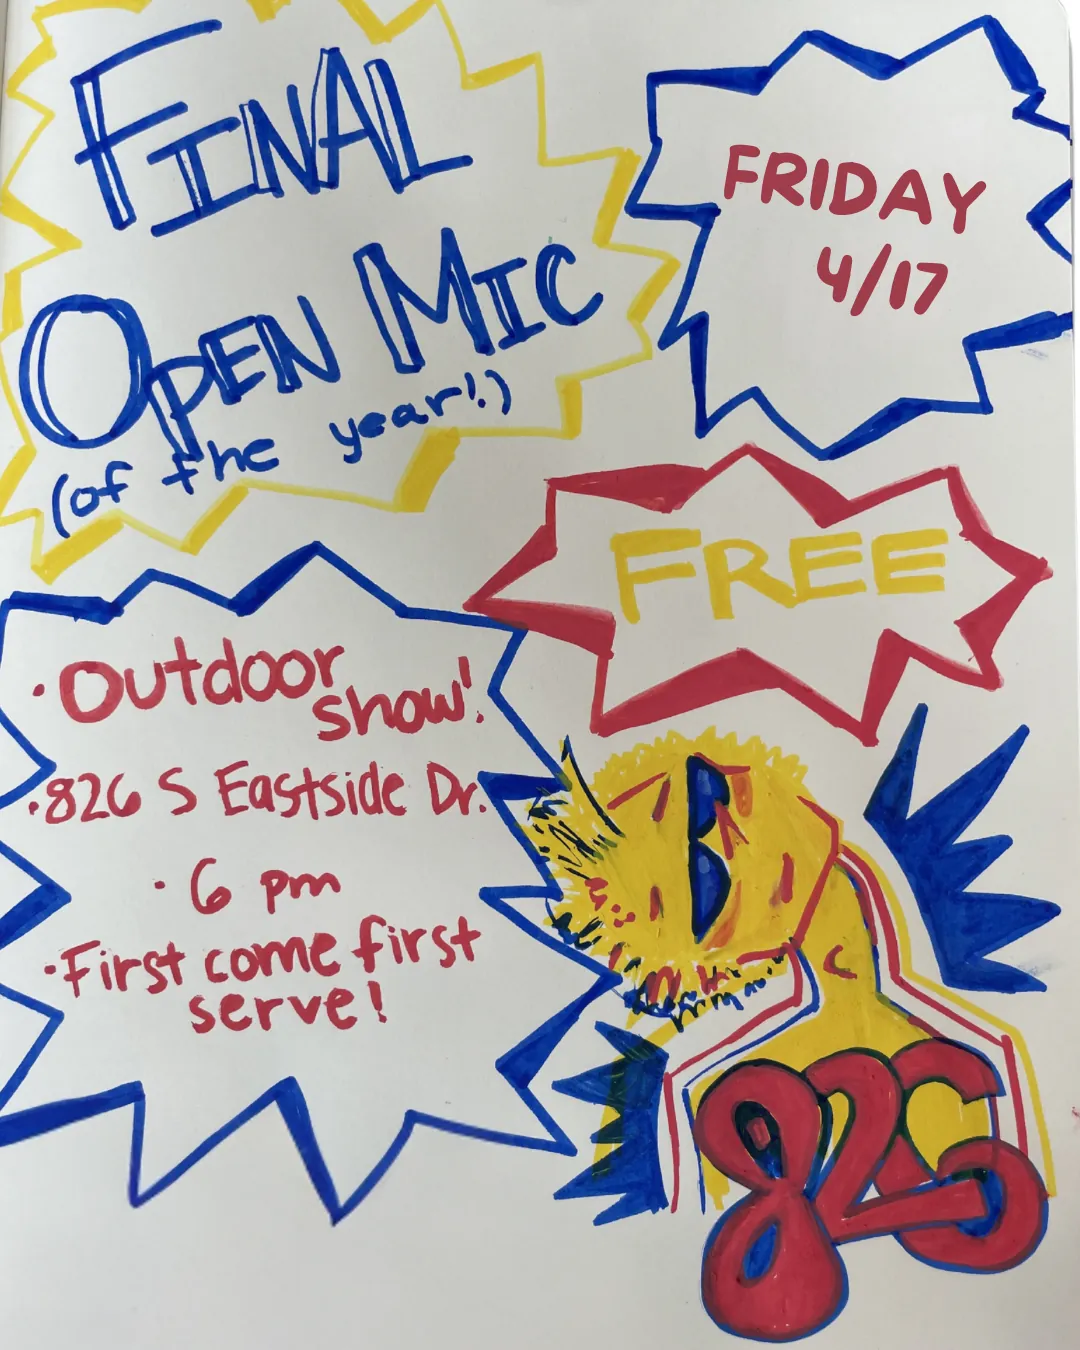 FINAL
OPEN MIC
(of the year!)
FRIDAY
4/17
FREE
• Outdoor
show!
• 826 S Eastside Dr.
• 6 pm
• First come first
serve!
826